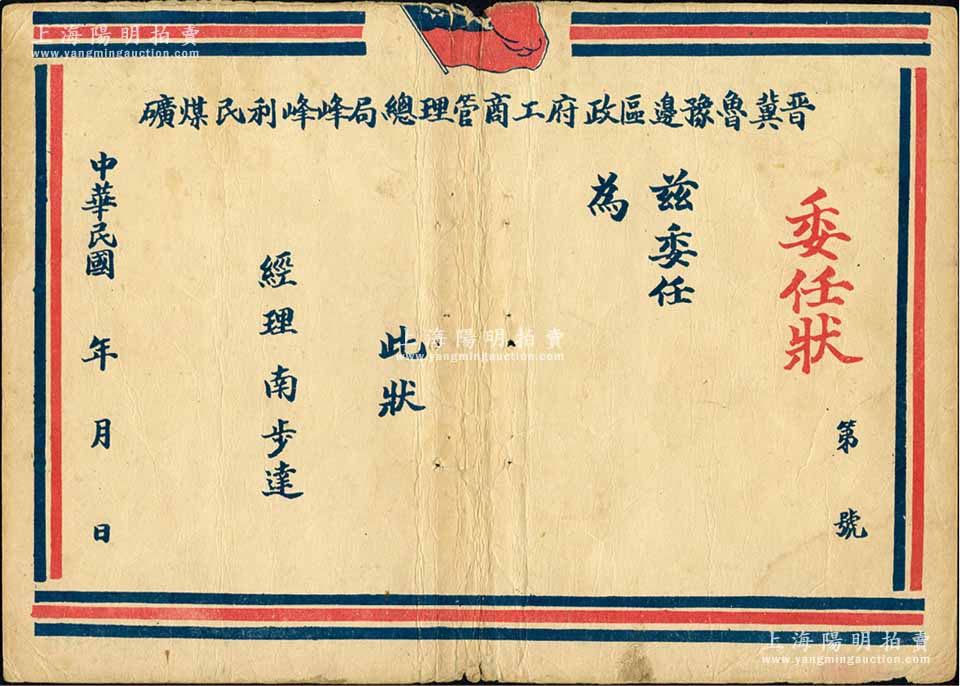 晋冀魯豫邊區政府工商管理總局峰峰利民煤礦
委任狀
第 號
兹委任
為
此狀
經理南步達
中華民國 年 月 日
上海陽明拍賣
www.yangmingauction.com
上海陽明拍賣
www.yangmingauction.com
上海陽明拍賣
www.yangmingauction.com